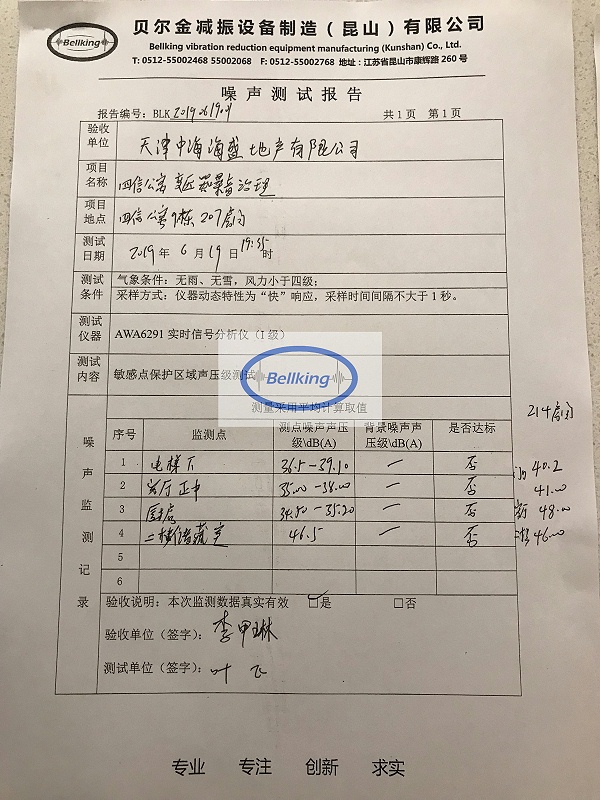 Bellking
贝尔金减振设备制造（昆山）有限公司
Bellking vibration reduction equipment manufacturing (Kunshan) Co., Ltd.
T: 0512-55002468 55002068 F: 0512-55002768 地址：江苏省昆山市康辉路 260 号
噪声测试报告
报告编号：BLK 2019061901 共1页 第1页
验收单位 天津中海海盛地产有限公司
项目名称 四信公寓 变压器噪音治理
项目地点 四信公寓 9栋 207房间
测试日期 2019 年 6 月 19 日 19:35 时
测试条件 气象条件：无雨、无雪，风力小于四级；
采样方式：仪器动态特性为“快”响应，采样时间间隔不大于 1 秒。
测试仪器 AWA6291 实时信号分析仪（I 级）
测试内容 敏感点保护区域声压级测试
Bellking
测量采用平均计算取值
214房间
噪声监测记录
序号 监测点 测点噪声声压级\dB(A) 背景噪声声压级\dB(A) 是否达标
1 电梯下 36.5-39.10 — 否 40.2
2 客厅正中 35.00-38.00 — 否 41.00
3 34.80-35.20 — 否 48.00
4 二楼储藏室 46.5 — 否 46.00
5
6
验收说明：本次监测数据真实有效 ☑是 □否
验收单位（签字）：李甲琳
测试单位（签字）：叶飞
专业 专注 创新 求实